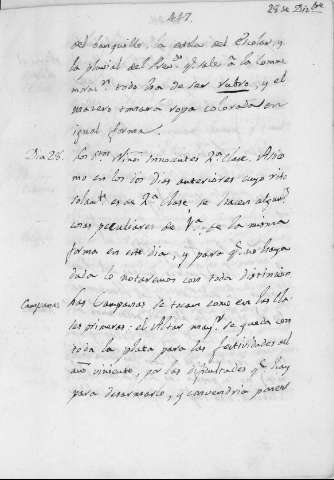 28 de Dizbre
417.
del banquillo, la estola del Escolar, y
la pluvial del Pres.º q.e sale à la Conme
morac.n todo ha de ser rubro, y el
macero tomará ropa colorada en
igual forma.
Dia 28. los stos. Niños Innocentes 2.ª clase. Assi co
mo en los dos dias anteriores cuyo rito
solam.te es de 2.ª Clase se hacen algun.s
cosas peculiares de 1.ª de la misma
forma en este dia, y para q.e no haya
duda lo notaremos con toda distincion
Campanas. Las Campanas se tocan como en las Cla
ses primeras: el Altar may.r se queda con
toda la plata para las festividades del
año viniente, por las dificultades q.e hay
para desarmarlo, y convendria poner